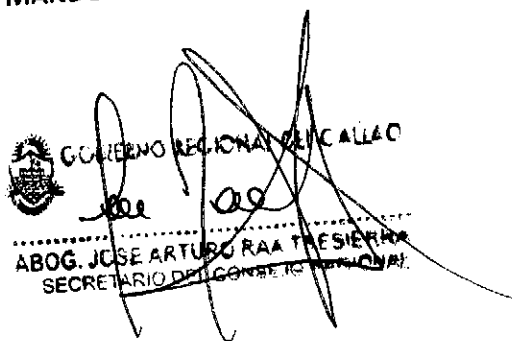 GOBIERNO REGIONAL DEL CALLAO
ABOG. JOSE ARTURO RAA TRESIERRA
SECRETARIO DEL CONSEJO REGIONAL